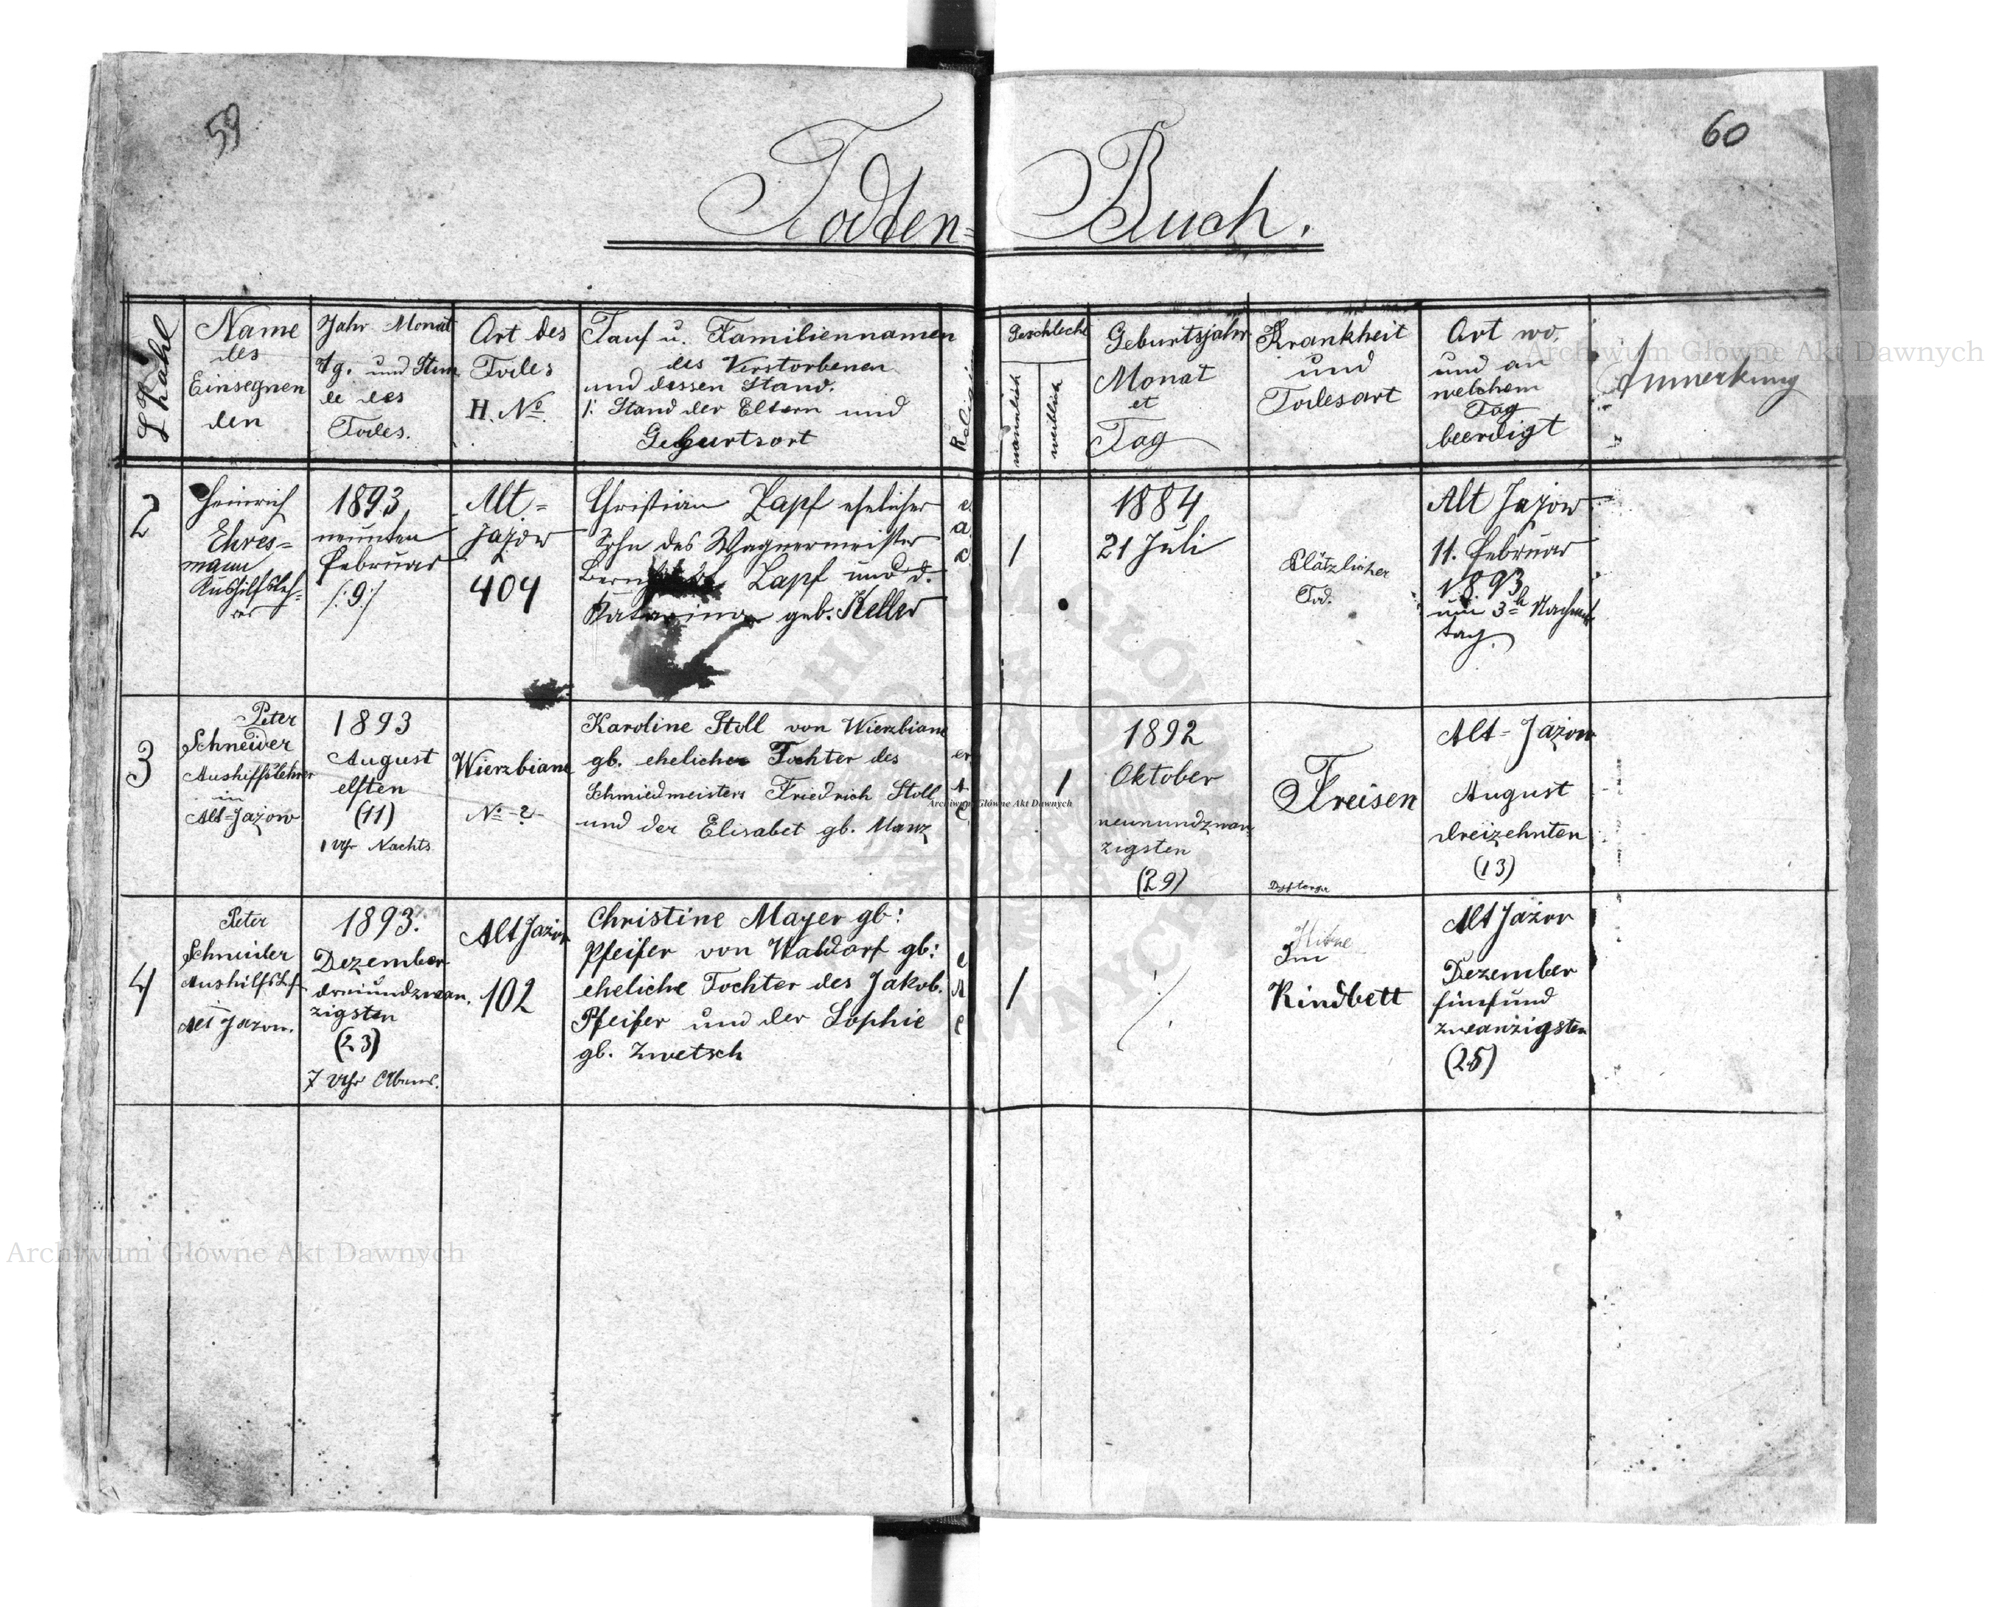 59
60
Todten-Buch.
L Zahl
Name
des
Einsegnen
den
Jahr Monat
Tg. und Stun
de des
Todes.
Ort des
Todes
H. No.
Tauf u. Familiennamen
des Verstorbenen
und dessen Stand.
Stand der Eltern und
Geburtsort
Religion
Geschlecht
männlich
weiblich
Geburtsjahr
Monat
et
Tag
Krankheit
und
Todesart
Ort wo,
und an
welchem
Tag
beerdigt
Anmerkung
2
Heinrich
Ehres=
mann
Aushilfsleh=
rer
1893
neunten
Februar
/:9:/
Alt=
Jazow
404
Christian Zapf ehelicher
Sohn des Wagnermeister
Zapf und d.
Katarina geb. Keller
1
1884
21 Juli
Plätzlicher
Tod.
Alt Jazow
11. Februar
1893
um 3h Nachmit
tag.
3
Peter
Schneider
Aushiffslehrer
in
Alt=Jazow
1893
August
elften
(11)
1 Uhr Nachts
Wierzbiane
No -2-
Karoline Stoll von Wierzbiane
gb. eheliche Tochter des
Schmiedmeisters Friedrich Stoll
und der Elisabet gb. Manz
1
1892
Oktober
neunundzwan
zigsten
(29)
Freisen
Alt=Jazow
August
dreizehnten
(13)
4
Peter
Schneider
Aushilfsl.
Alt Jazow.
1893.
Dezember
dreiundzwan.
zigsten
(23)
7 Uhr Abens.
Alt Jazow
102
Christine Mayer gb:
Pfeifer von Waldorf gb:
eheliche Tochter des Jakob.
Pfeifer und der Sophie
gb. Zwetsch
1
Im
Kindbett
Alt Jazow
Dezember
fünfund
zweanzigsten
(25)
Archiwum Główne Akt Dawnych
Archiwum Główne Akt Dawnych
Archiwum Główne Akt Dawnych